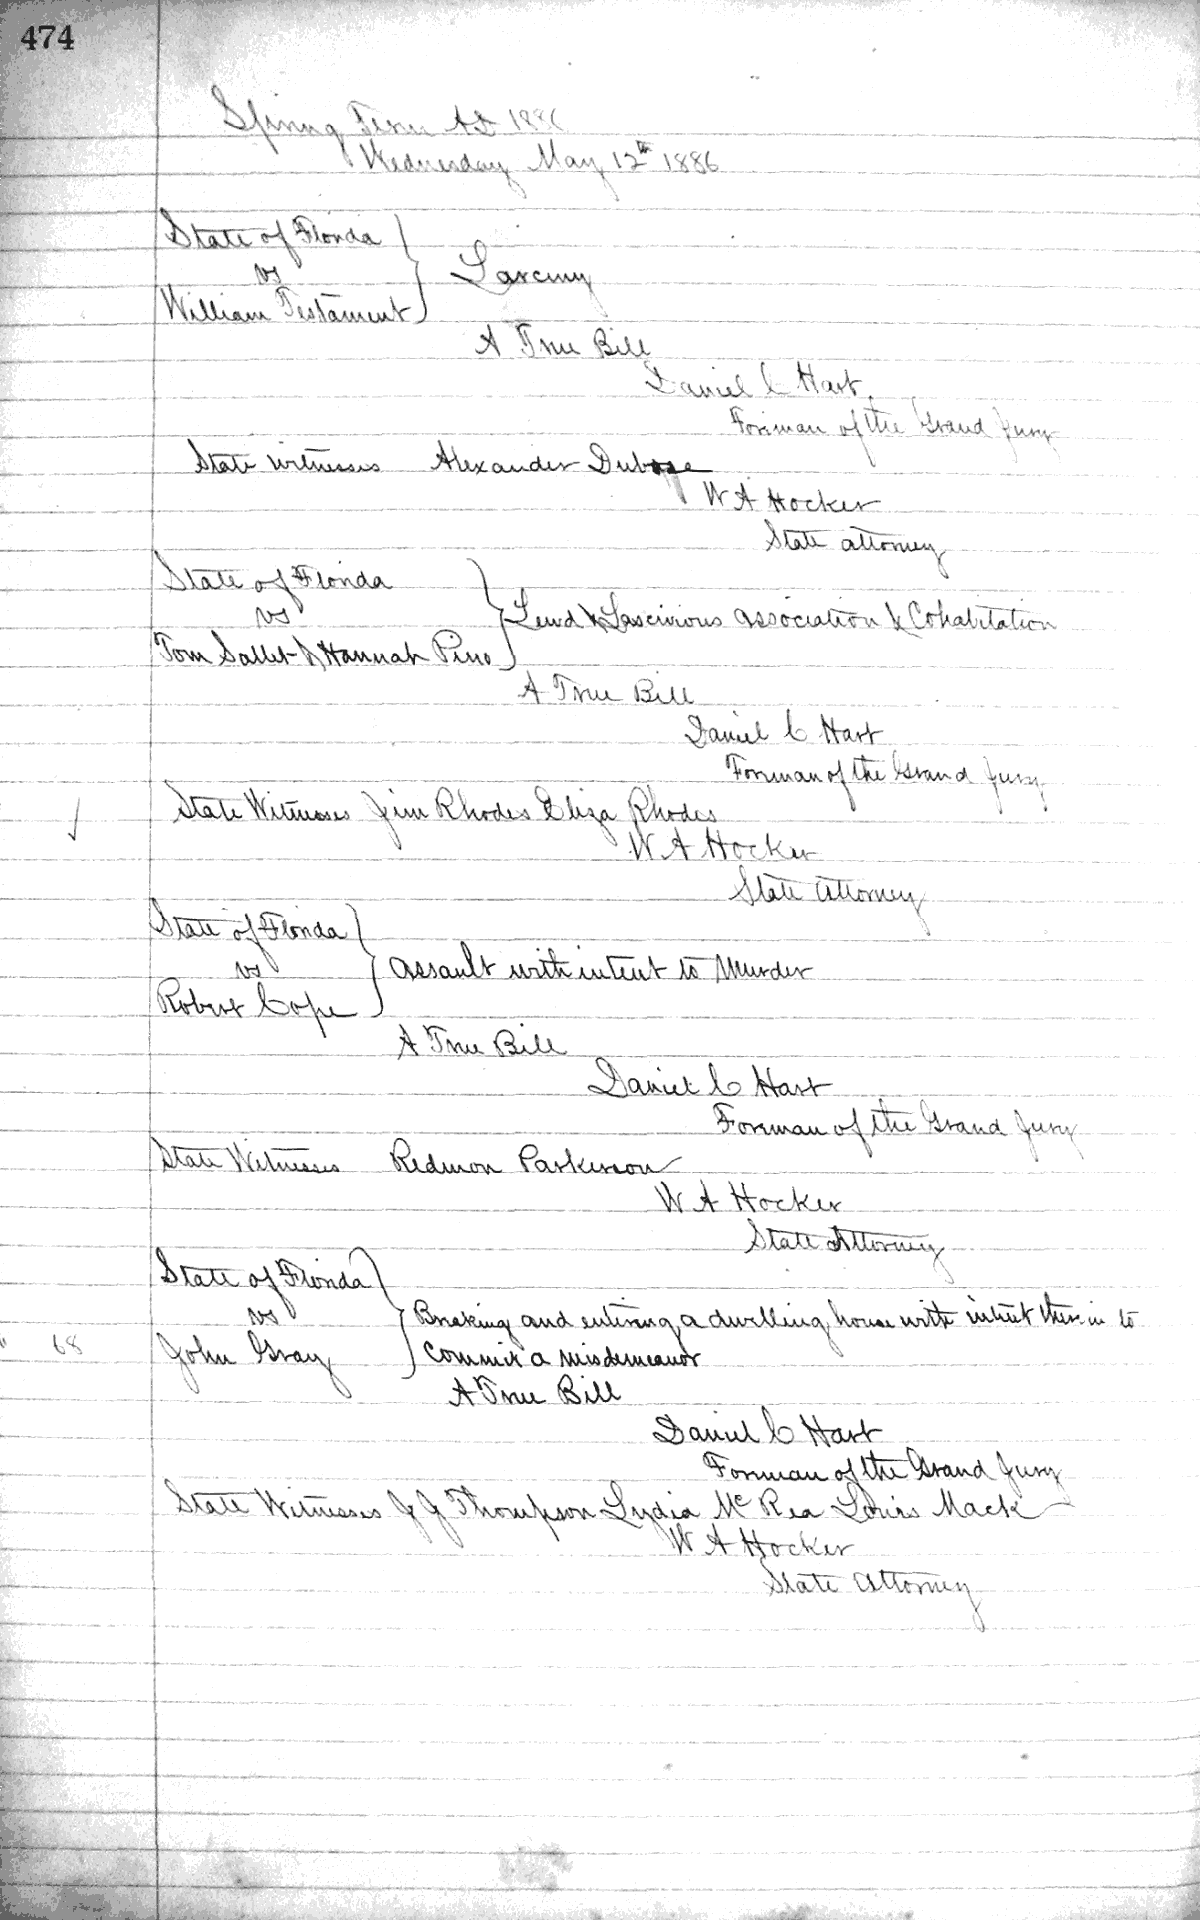 474
Spring Term AD 1886
Wednesday May 12th 1886
State of Florida
vs
Larceny
William Testament
A True Bill
Daniel C Hart
Foreman of the Grand Jury
State witnesses Alexander Dubose
W A Hocker
State attorney
State of Florida
vs
Lewd & Lascivious association & Cohabitation
Tom Sallet & Hannah Pino
A True Bill
Daniel C Hart
Foreman of the Grand Jury
State Witnesses Jim Rhodes Eliza Rhodes
W A Hocker
State Attorney
State of Florida
vs
Assault with intent to Murder
Robert Cope
A True Bill
Daniel C Hart
Foreman of the Grand Jury
State Witnesses Redmon Parkerson
W A Hocker
State Attorney
State of Florida
vs
Breaking and entering a dwelling house with intent therein to
68
John Gray
commit a misdemeanor
A True Bill
Daniel C Hart
Foreman of the Grand Jury
State Witnesses J J Thompson Lydia McRea Louis Mack
W A Hocker
State Attorney